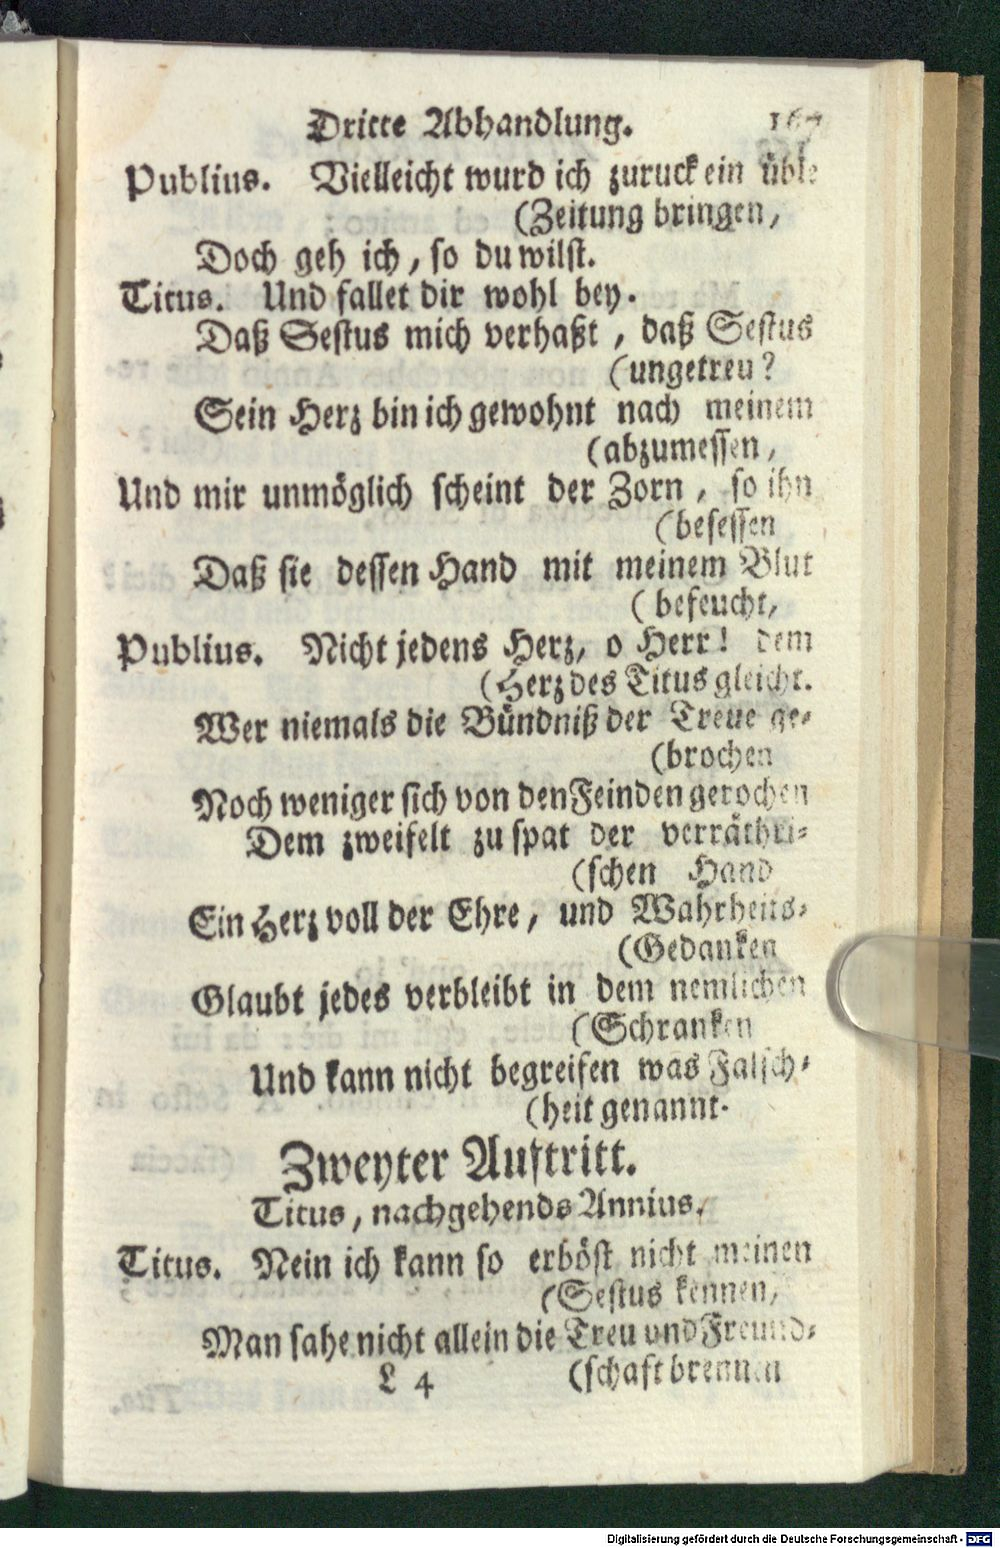 Dritte Abhandlung. 167
Publius. Vielleicht wurd ich zuruck ein üble
(Zeitung bringen,
Doch geh ich, so du wilst.
Titus. Und fallet dir wohl bey.
Daß Sestus mich verhaßt, daß Sestus
(ungetreu?
Sein Herz bin ich gewohnt nach meinem
(abzumessen,
Und mir unmöglich scheint der Zorn, so ihn
(besessen
Daß sie dessen Hand mit meinem Blut
(befeucht,
Publius. Nicht jedens Herz, o Herr! dem
(Herz des Titus gleicht.
Wer niemals die Bündniß der Treue ge-
(brochen
Noch weniger sich von den Feinden gerochen
Dem zweifelt zu spat der verräthri-
(schen Hand
Ein Herz voll der Ehre, und Wahrheits-
(Gedanken
Glaubt jedes verbleibt in dem nemlichen
(Schranken
Und kann nicht begreifen was Falsch-
(heit genannt.
Zweyter Auftritt.
Titus, nachgehends Annius.
Titus. Nein ich kann so erböst nicht meinen
(Sestus kennen,
Man sahe nicht allein die Treu und Freund-
(schaft brennen
L 4
Digitalisierung gefördert durch die Deutsche Forschungsgemeinschaft - DFG